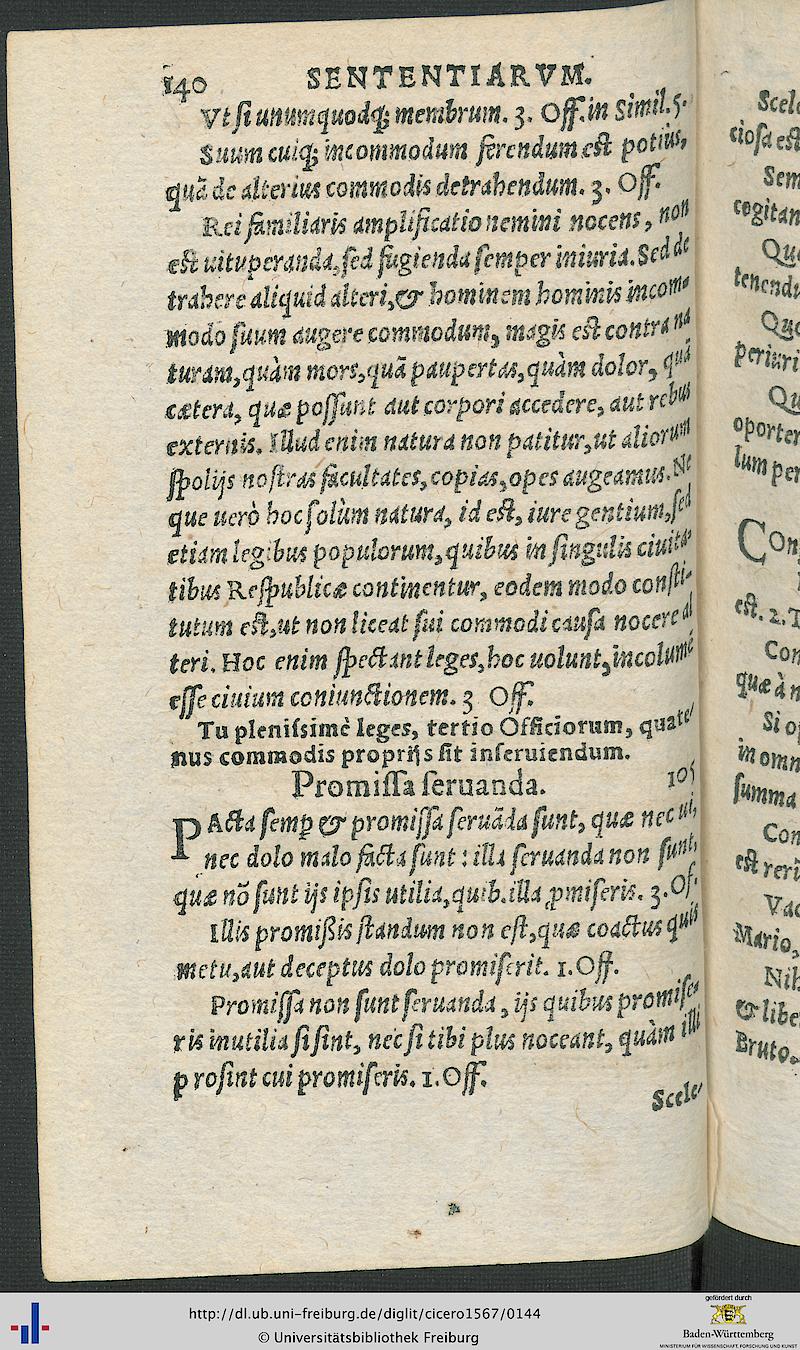 140 SENTENTIARVM.
Vt si unumquodq; membrum. 3. Off. in Simil. 5.
Suum cuiq; incommodum ferendum est potius,
quã de alterius commodis detrahendum. 3. Off.
Rei familiaris amplificatio nemini nocens, non
est uituperanda, sed fugienda semper iniuria. Sed de
trahere aliquid alteri, & hominem hominis incom-
modo suum augere commodum, magis est contra na
turam, quàm mors, quã paupertas, quàm dolor, quã
cætera, quæ possunt aut corpori accedere, aut rebus
externis. Illud enim natura non patitur, ut aliorum
spolijs nostras facultates, copias, opes augeamus. Ne
que uerò hoc solùm natura, id est, iure gentium, sed
etiam legibus populorum, quibus in singulis ciuita-
tibus Respublicæ continentur, eodem modo consti-
tutum est, ut non liceat sui commodi causa nocere al
teri. Hoc enim spectant leges, hoc uolunt, incolumẽ
esse ciuium coniunctionem. 3 Off.
Tu plenissimè leges, tertio Officiorum, quate-
nus commodis proprijs sit inseruiendum.
Promissa seruanda. 105
PActa semꝑ & promissa seruãda sunt, quæ nec ui,
nec dolo malo facta sunt: illa seruanda non sunt,
quæ nõ sunt ijs ipsis utilia, quib. illa ꝓmiseris. 3. Of.
Illis promißis standum non est, quæ coactus quis
metu, aut deceptus dolo promiserit. 1. Off.
Promissa non sunt seruanda, ijs quibus promise-
ris inutilia si sint, nec si tibi plus noceant, quàm illi
prosint cui promiseris. 1. Off.
Scele-
Scele
ciosa est
Sem
cogitan
Que
tenendu
Quo
periuri
Qu
oporter
lum per
Con
est. 2. T
Con
quæ à n
Si op
in omn
summa
Con
est rerũ
Vac
Mario,
Nih
& libe
Bruto.
http://dl.ub.uni-freiburg.de/diglit/cicero1567/0144
© Universitätsbibliothek Freiburg
gefördert durch
Baden-Württemberg
MINISTERIUM FÜR WISSENSCHAFT, FORSCHUNG UND KUNST